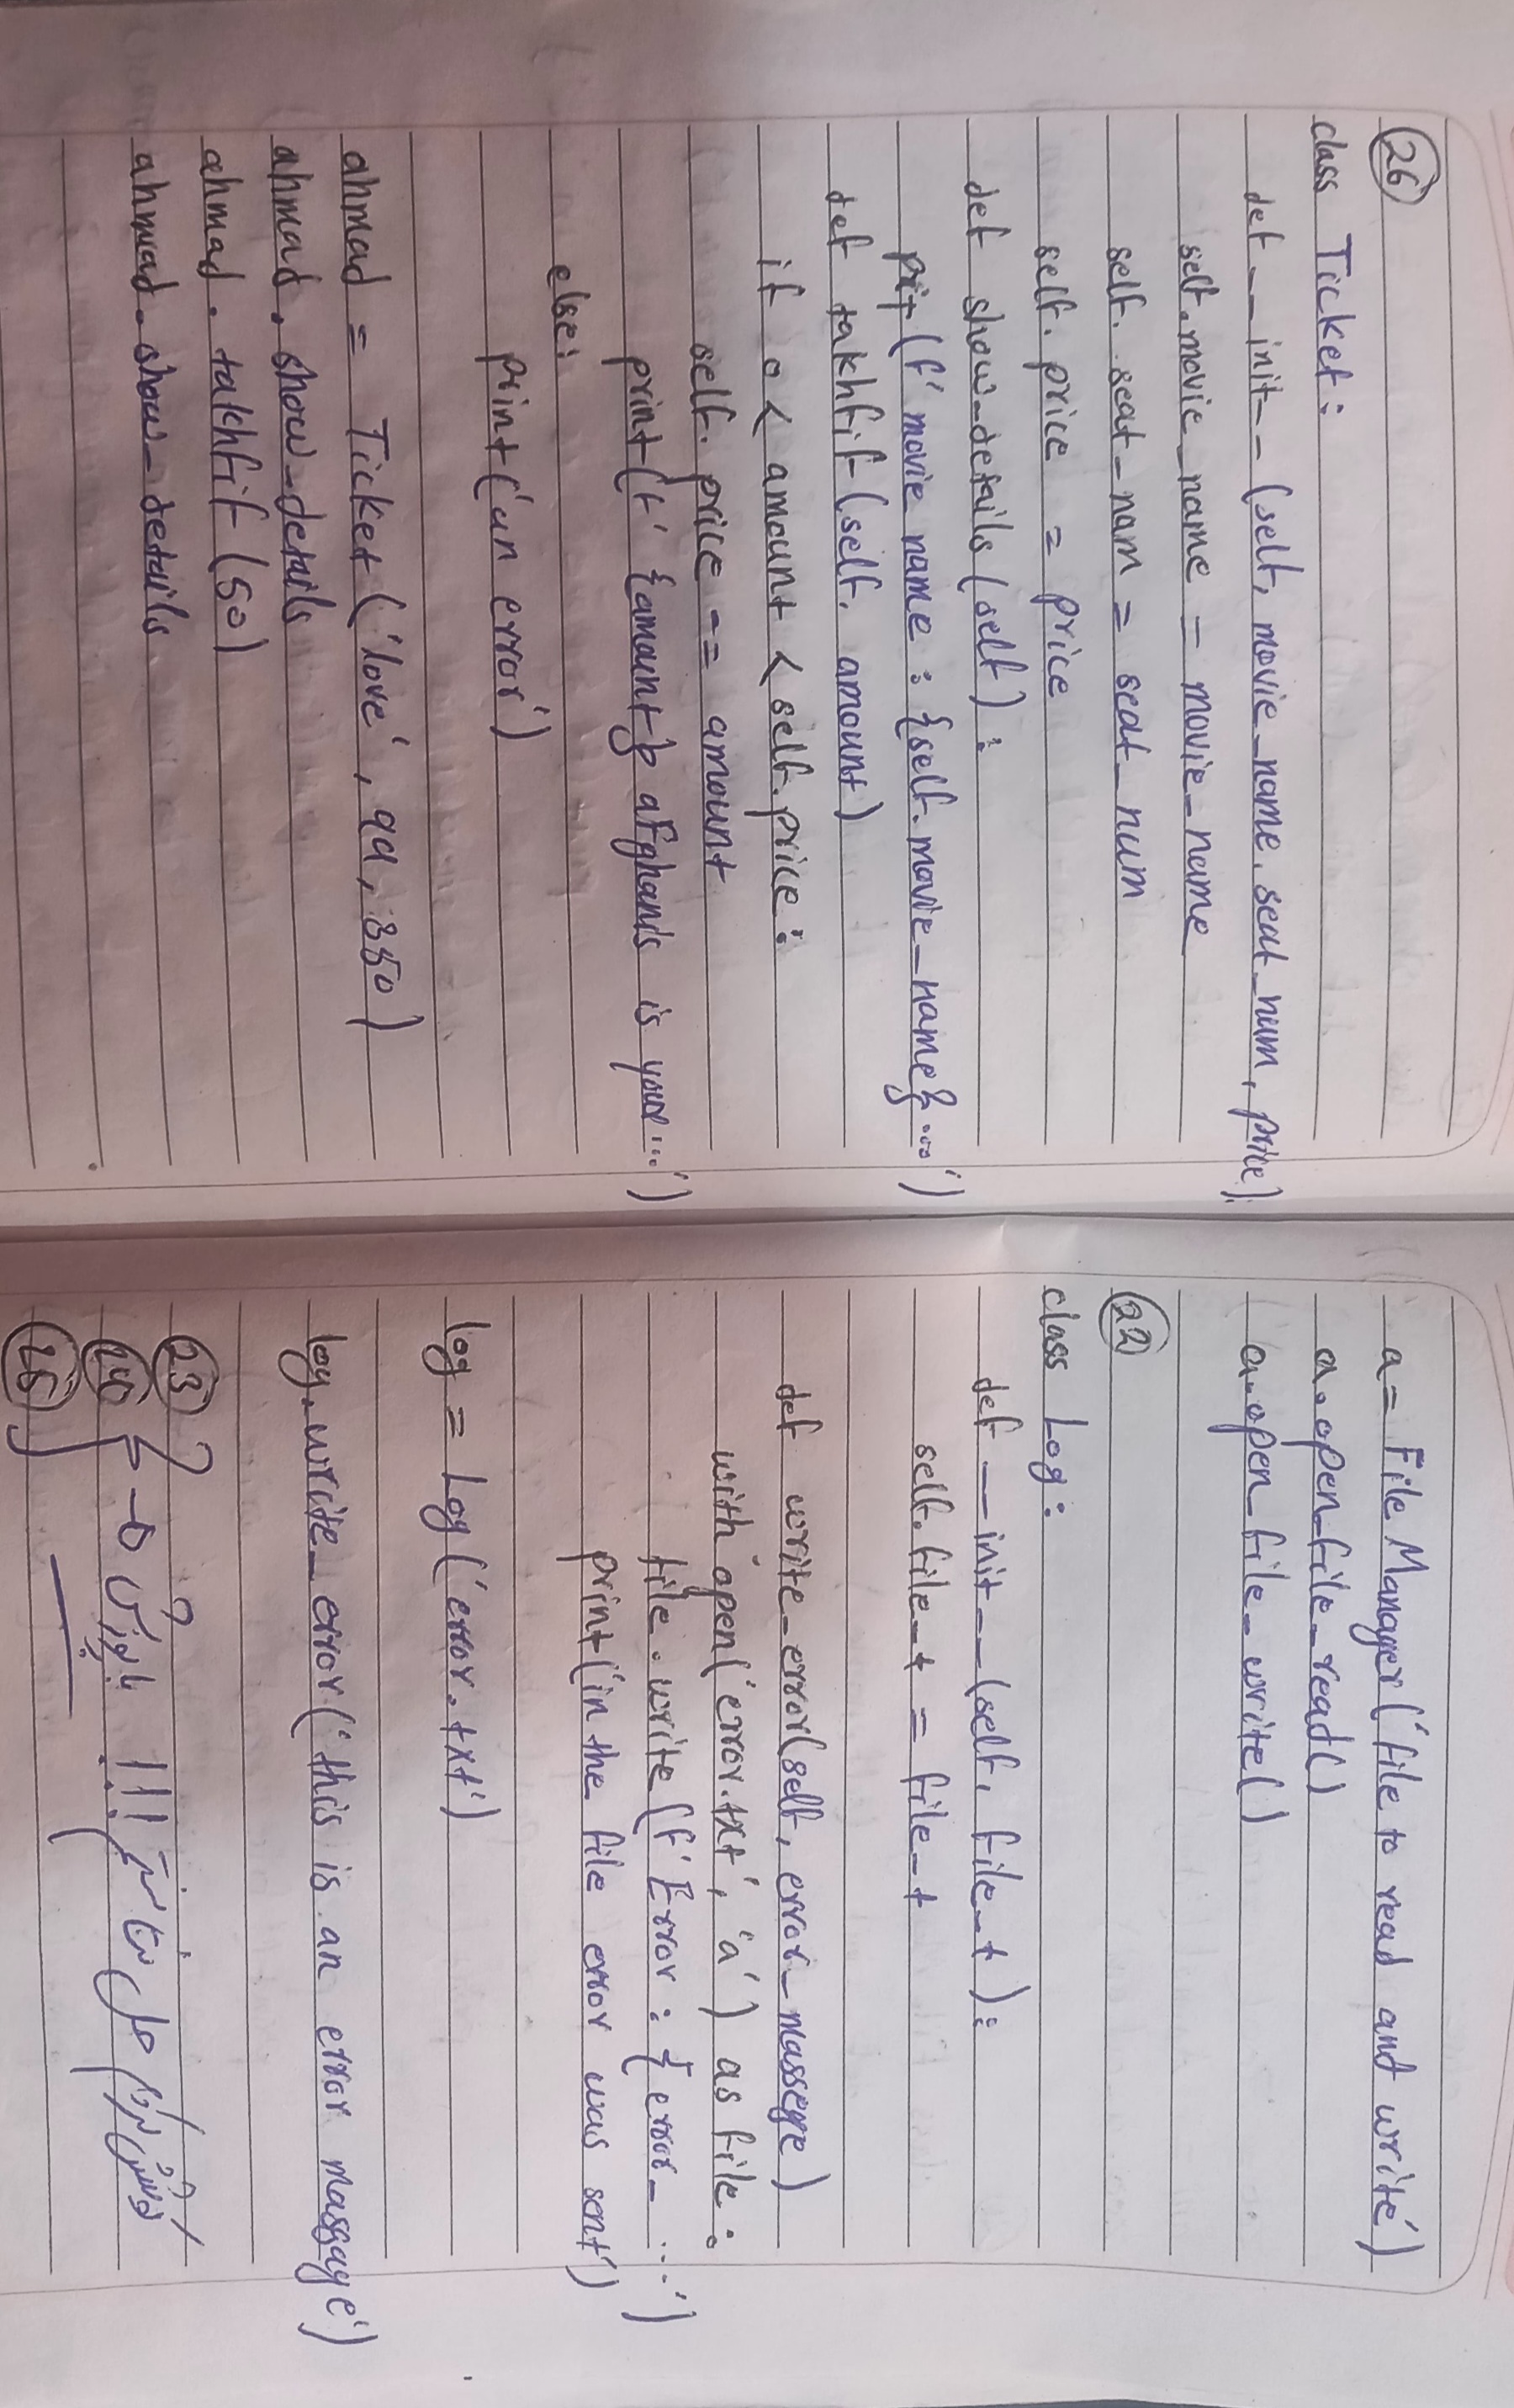 26
class Ticket:
def __init__(self, movie_name, seat_num, price):
self.movie_name = movie_name
self.seat_nam = seat_num
self.price = price
def show_details(self):
prit(f'movie name : {self.movie_name}...')
def takhfif(self. amount)
if 0 < amount < self.price:
self.price -= amount
print(f' {amount} afghanis is your...')
else:
print('un error')
ahmad = Ticket('love', 99, 350)
ahmad.show_details
ahmad.takhfif(50)
ahmad.show_details
a = File Manager('file to read and write')
a.open_file_read()
a.open_file_write()
22
class Log:
def __init__(self, file_t):
self.file_t = file_t
def write_error(self, error_massege)
with open('error.txt', 'a') as file:
file.write(f'Error: {error_...')
print('in the file error was sent')
log = Log('error.txt')
log.write_error('this is an error massage')
23
24
25